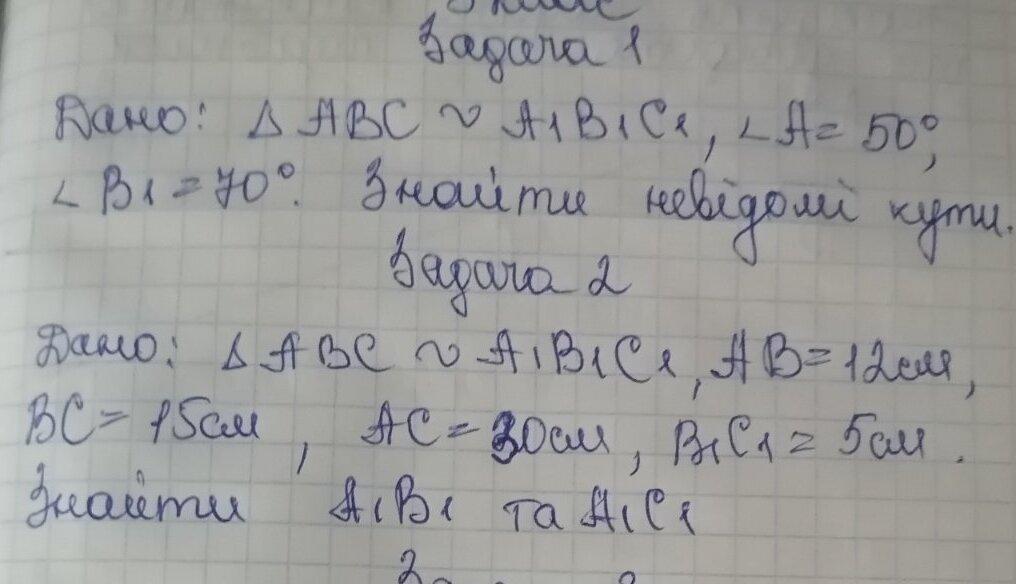 Задача 1
Дано: Δ ABC ~ A₁B₁C₁, ∠A = 50°,
∠B₁ = 70°. Знайти невідомі кути.
Задача 2
Дано: Δ ABC ~ A₁B₁C₁, AB = 12см,
BC = 15см, AC = 30см, B₁C₁ = 5см.
Знайти A₁B₁ та A₁C₁